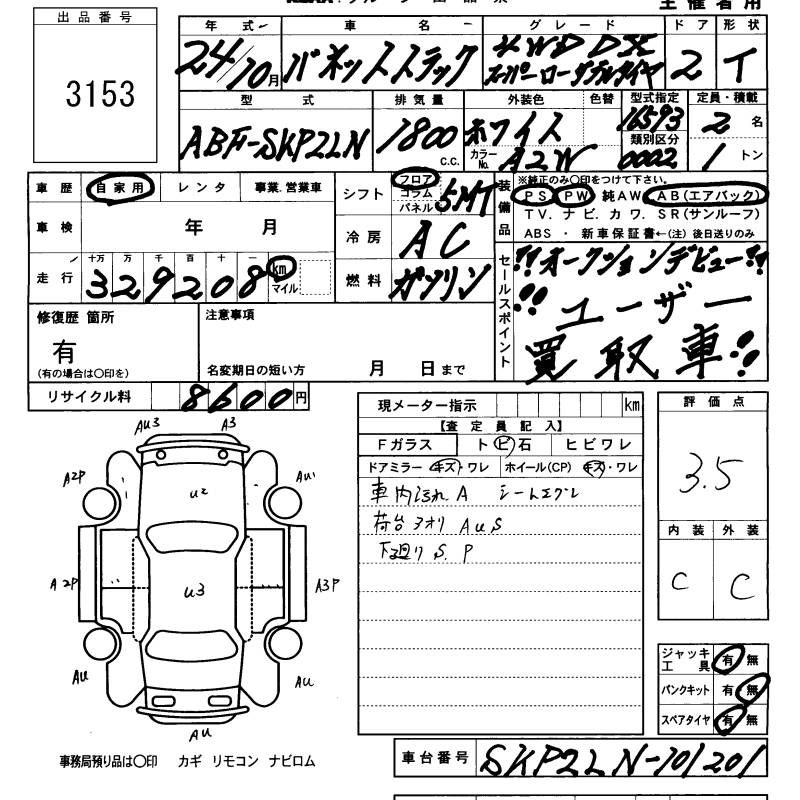 出品番号
3153
主催者用
年式 車名 グレード ドア 形状
24/10月 バネットトラック 4WD DX スーパーローダブルタイヤ 2 イ
型式 排気量 外装色 色替 型式指定 定員・積載
ABF-SKP2LN 1800c.c. ホワイト 16593 2名
カラーNo. A2W 類別区分 0002 1トン
車歴 自家用 レンタ 事業.営業車
シフト フロア コラム パネル 5MT
装備品 ※純正のみ〇印をつけて下さい。
PS PW 純AW AB(エアバック)
TV. ナビ. カワ. SR(サンルーフ)
ABS ・ 新車保証書←(注) 後日送りのみ
車検 年 月
冷房 AC
走行 十万 万 千 百 十 一
329208 km マイル
燃料 ガソリン
セールスポイント
!!オークションデビュー!!
!!ユーザー
買取車!!
修復歴 箇所
有
(有の場合は〇印を)
注意事項
名変期日の短い方 月 日まで
リサイクル料 8600円
現メーター指示 km
【査定員記入】
Fガラス トビ石 ヒビワレ
ドアミラー キズ・ワレ ホイール(CP) キズ・ワレ
車内汚れ A シートスグレ
荷台 アオリ AuS
下廻り S. P
評価点
3.5
内装 外装
C C
AU3 A3
A2P U2 AU
A2P U3 A3P
AU AU
AU
ジャッキ工具 有 無
パンクキット 有 無
スペアタイヤ 有 無
事務局預り品は〇印 カギ リモコン ナビロム
車台番号 SKP2LN-101201